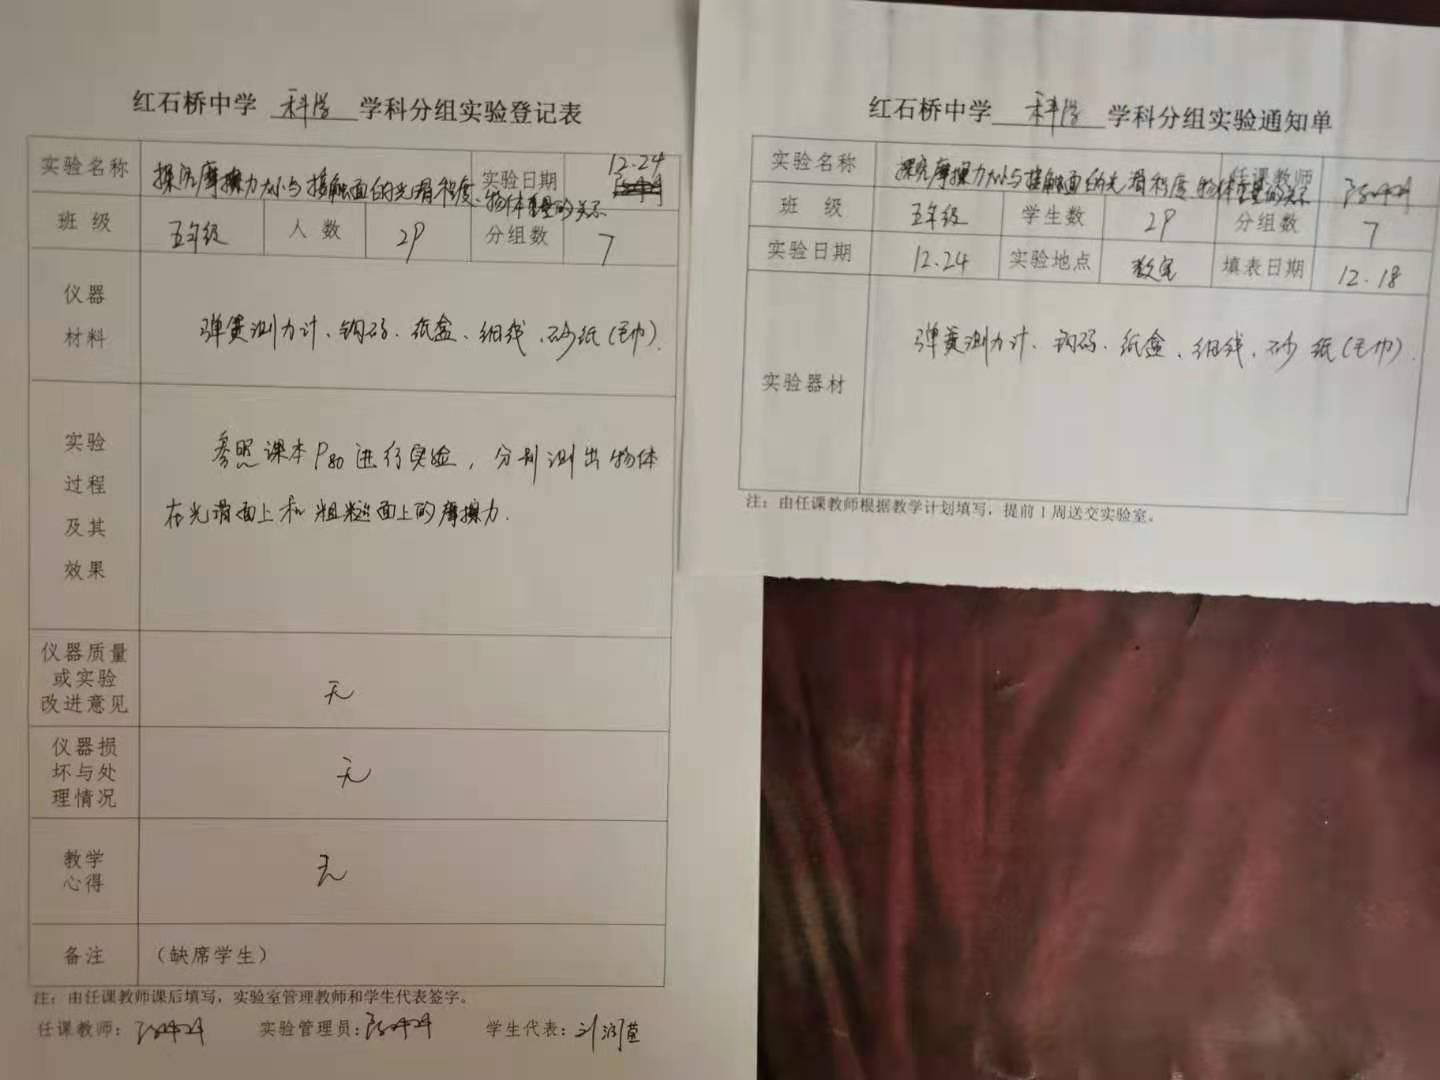 红石桥中学 科学 学科分组实验登记表
实验名称 探究摩擦力大小与接触面的光滑程度、物体重量的关系 实验日期 12.24
班 级 五年级 人 数 29 分组数 7
仪器
材料
弹簧测力计、钩码、纸盒、细线、砂纸(毛巾).
实验
过程
及其
效果
参照课本P80进行实验，分别测出物体
在光滑面上和粗糙面上的摩擦力.
仪器质量
或实验
改进意见
无
仪器损
坏与处
理情况
无
教学
心得
无
备注 （缺席学生）
注：由任课教师课后填写，实验室管理教师和学生代表签字。
任课教师： 实验管理员： 学生代表：刘
红石桥中学 科学 学科分组实验通知单
实验名称 探究摩擦力大小与接触面的光滑程度、物体重量的关系 任课教师
班 级 五年级 学生数 29 分组数 7
实验日期 12.24 实验地点 教室 填表日期 12.18
实验器材
弹簧测力计、钩码、纸盒、细线、砂纸(毛巾).
注：由任课教师根据教学计划填写，提前1周送交实验室。